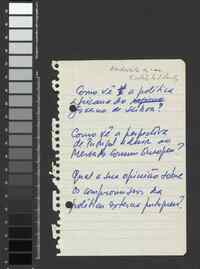 Como vê a política
africana do
governo de Lisboa?
Como vê a perspectiva
de Portugal aderir ao
Mercado Comum Europeu?
Qual a sua opinião sobre
os compromissos da
política externa portuguesa?